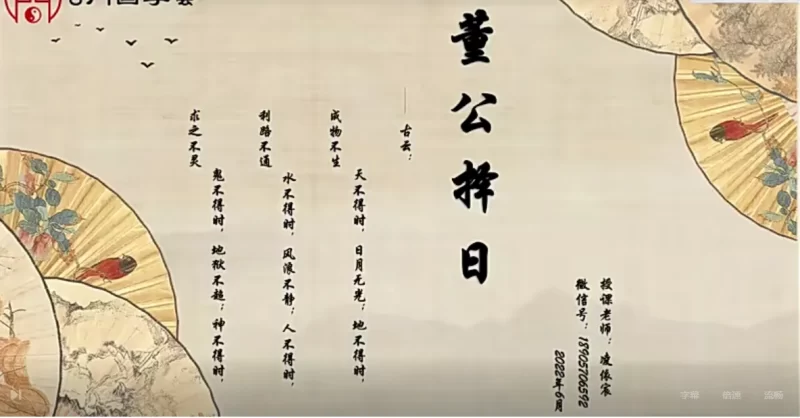 董公择日
授课老师：凌依宸
微信号：18905706592
2022年6月
——古云：
天不得时，日月无光；地不得时，
成物不生
水不得时，风浪不静；人不得时，
利路不通
鬼不得时，地狱不超；神不得时，
求之不灵
字幕
倍速
流畅